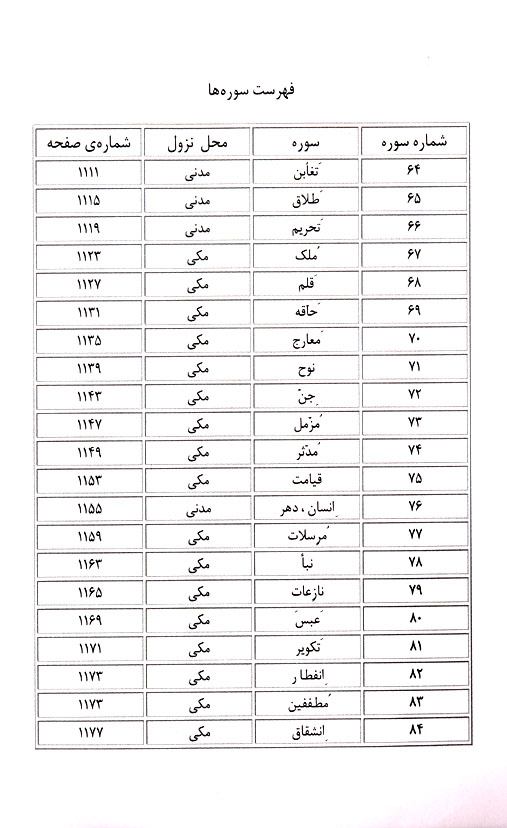 فهرست سوره‌ها
شماره سوره سوره محل نزول شماره‌ی صفحه
۶۴ تَغابن مدنی ۱۱۱۱
۶۵ طَلاق مدنی ۱۱۱۵
۶۶ تَحریم مدنی ۱۱۱۹
۶۷ مُلک مکی ۱۱۲۳
۶۸ قَلم مکی ۱۱۲۷
۶۹ حَآقه مکی ۱۱۳۱
۷۰ مَعارج مکی ۱۱۳۵
۷۱ نوح مکی ۱۱۳۹
۷۲ جِنّ مکی ۱۱۴۳
۷۳ مُزّمل مکی ۱۱۴۷
۷۴ مُدّثر مکی ۱۱۴۹
۷۵ قیامت مکی ۱۱۵۳
۷۶ اِنسان، دهر مدنی ۱۱۵۵
۷۷ مُرسلات مکی ۱۱۵۹
۷۸ نبأ مکی ۱۱۶۳
۷۹ نازعات مکی ۱۱۶۵
۸۰ عَبسَ مکی ۱۱۶۹
۸۱ تَکویر مکی ۱۱۷۱
۸۲ اِنفطار مکی ۱۱۷۳
۸۳ مُطففین مکی ۱۱۷۳
۸۴ اِنشقاق مکی ۱۱۷۷